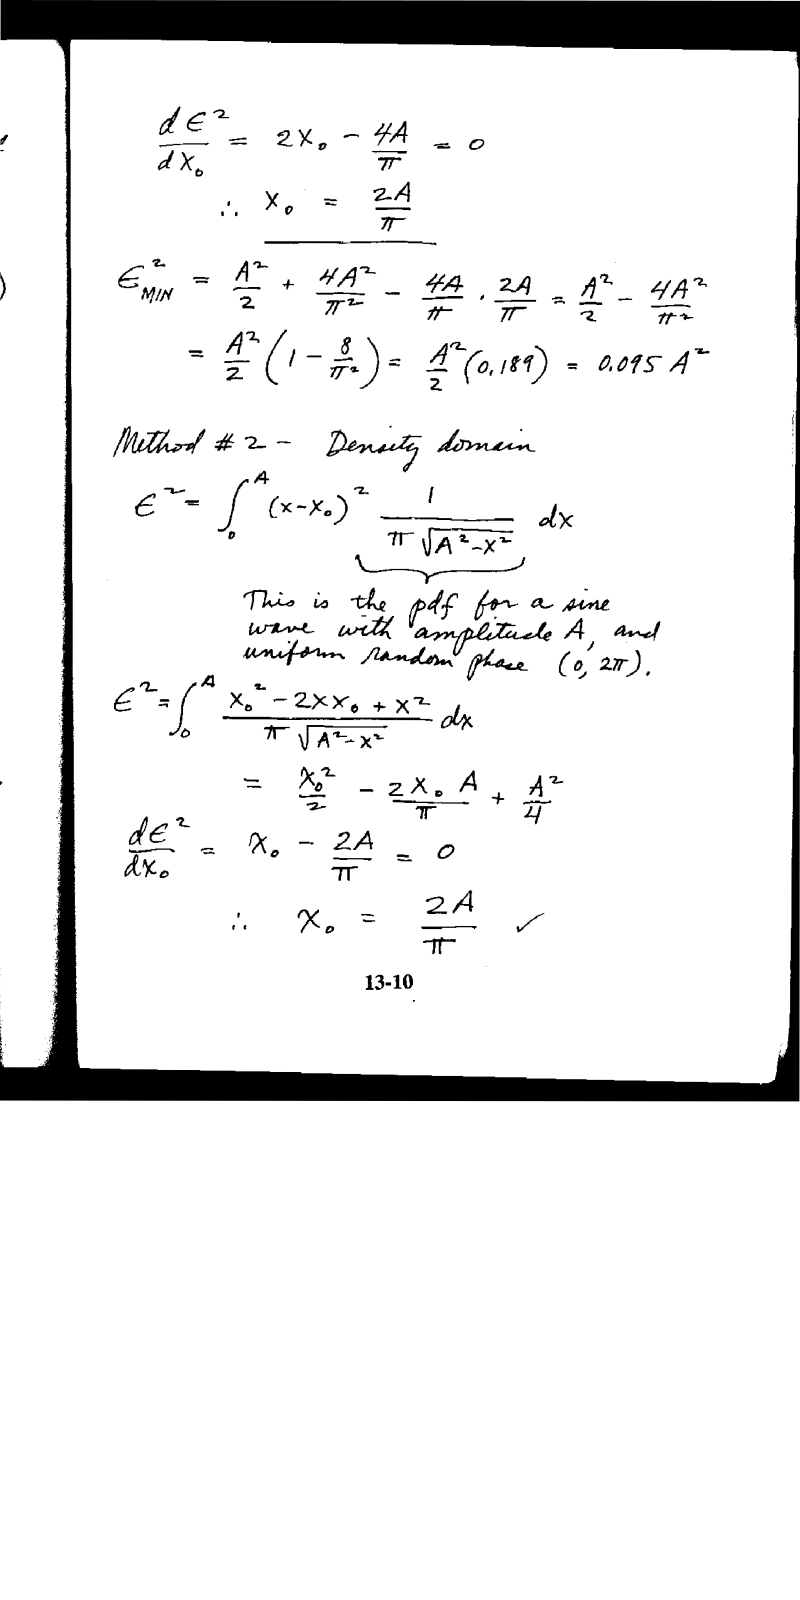 dϵ²/dX₀ = 2X₀ - 4A/π = 0
∴ X₀ = 2A/π
ϵ²MIN = A²/2 + 4A²/π² - 4A/π · 2A/π = A²/2 - 4A²/π²
= A²/2 (1 - 8/π²) = A²/2 (0.189) = 0.095 A²
Method # 2 - Density domain
ϵ² = ∫₀ᴬ (x-x₀)² 1/(π √(A²-x²)) dx
This is the pdf for a sine
wave with amplitude A, and
uniform random phase (0, 2π).
ϵ² = ∫₀ᴬ (x₀² - 2xx₀ + x²)/(π √(A²-x²)) dx
= X₀²/2 - 2X₀A/π + A²/4
dϵ²/dx₀ = X₀ - 2A/π = 0
∴ X₀ = 2A/π ✓
13-10